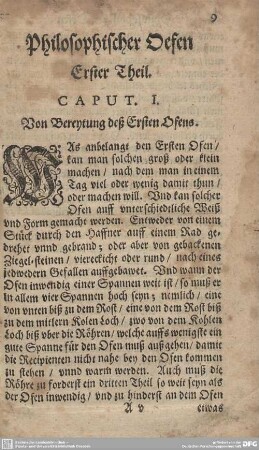 9
Philosophischer Oefen
Erster Theil.
CAPUT. I.
Von Bereytung deß Ersten Ofens.
WAs anbelangt den Ersten Ofen/
kan man solchen groß oder klein
machen / nach dem man in einem
Tag viel oder wenig damit thun /
oder machen will. Vnd kan solcher
Ofen auff vnterschiedliche Weiß
vnd Form gemacht werden. Entweder von einem
Stück durch den Haffner auff einem Rad ge-
drehet vnnd gebrand; oder aber von gebackenen
Ziegelsteinen / viereckicht oder rund / nach eines
jedwedern Gefallen auffgebawet. Vnd wann der
Ofen inwendig einer Spannen weit ist / so muß er
in allem vier Spannen hoch seyn; nemlich / eine
von vnten biß zu dem Rost / eine von dem Rost biß
zu dem mitlern Kolenloch / zwo von dem Kohlen-
loch biß vber die Röhren / welche auffs wenigste ein
gute Spanne für den Ofen muß außgehen / damit
die Recipienten nicht nahe bey den Ofen kommen
zu stehen / vnnd warm werden. Auch muß die
Röhre zu forderst ein dritten Theil so weit seyn als
der Ofen inwendig / vnd zu hinderst an dem Ofen
A v etwas
DFG